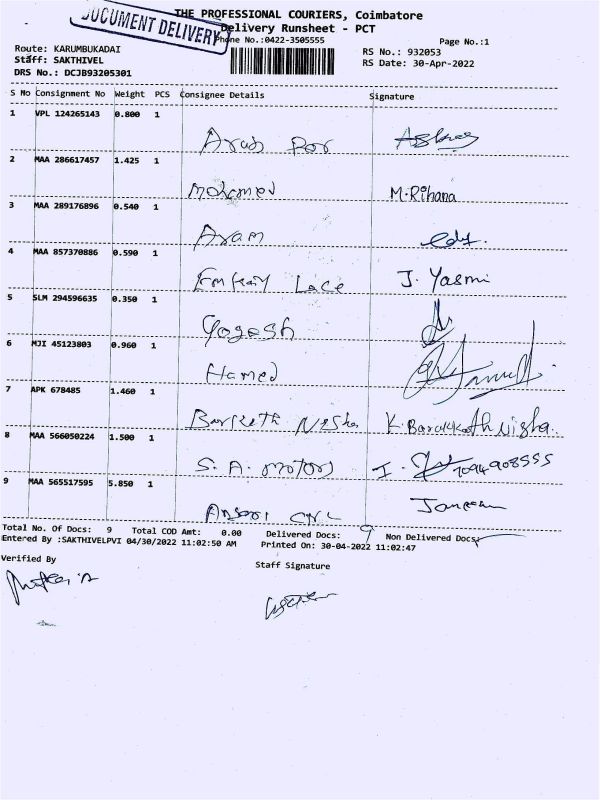 DOCUMENT DELIVERY
THE PROFESSIONAL COURIERS, Coimbatore
Delivery Runsheet - PCT
Phone No.:0422-3505555
Page No.:1
Route: KARUMBUKADAI
RS No.: 932053
Staff: SAKTHIVEL
RS Date: 30-Apr-2022
DRS No.: DCJB93205301
S No Consignment No Weight PCS Consignee Details Signature
1 VPL 124265143 0.800 1
2 MAA 286617457 1.425 1
Mohamed M.Rihana
3 MAA 289176896 0.540 1
Aram
4 MAA 857370886 0.590 1
Lace J. Yasmi
5 SLM 294596635 0.350 1
Yogesh
6 MJI 45123803 0.960 1
Hamed
7 APK 678485 1.460 1
Nisha K. Barakkathnisha.
8 MAA 566050224 1.500 1
S. A. motors 7094908555
9 MAA 565517595 5.850 1
Total No. Of Docs: 9 Total COD Amt: 0.00 Delivered Docs: 9 Non Delivered Docs:
Entered By :SAKTHIVELPVI 04/30/2022 11:02:50 AM Printed On: 30-04-2022 11:02:47
Verified By
Staff Signature